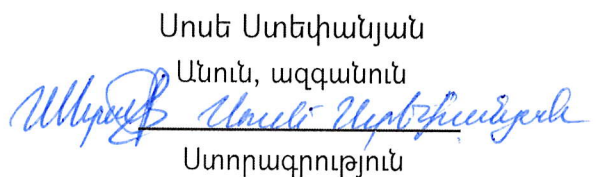 Սոսե Ստեփանյան
Անուն, ազգանուն
Սոսե Ստեփանյան
Ստորագրություն